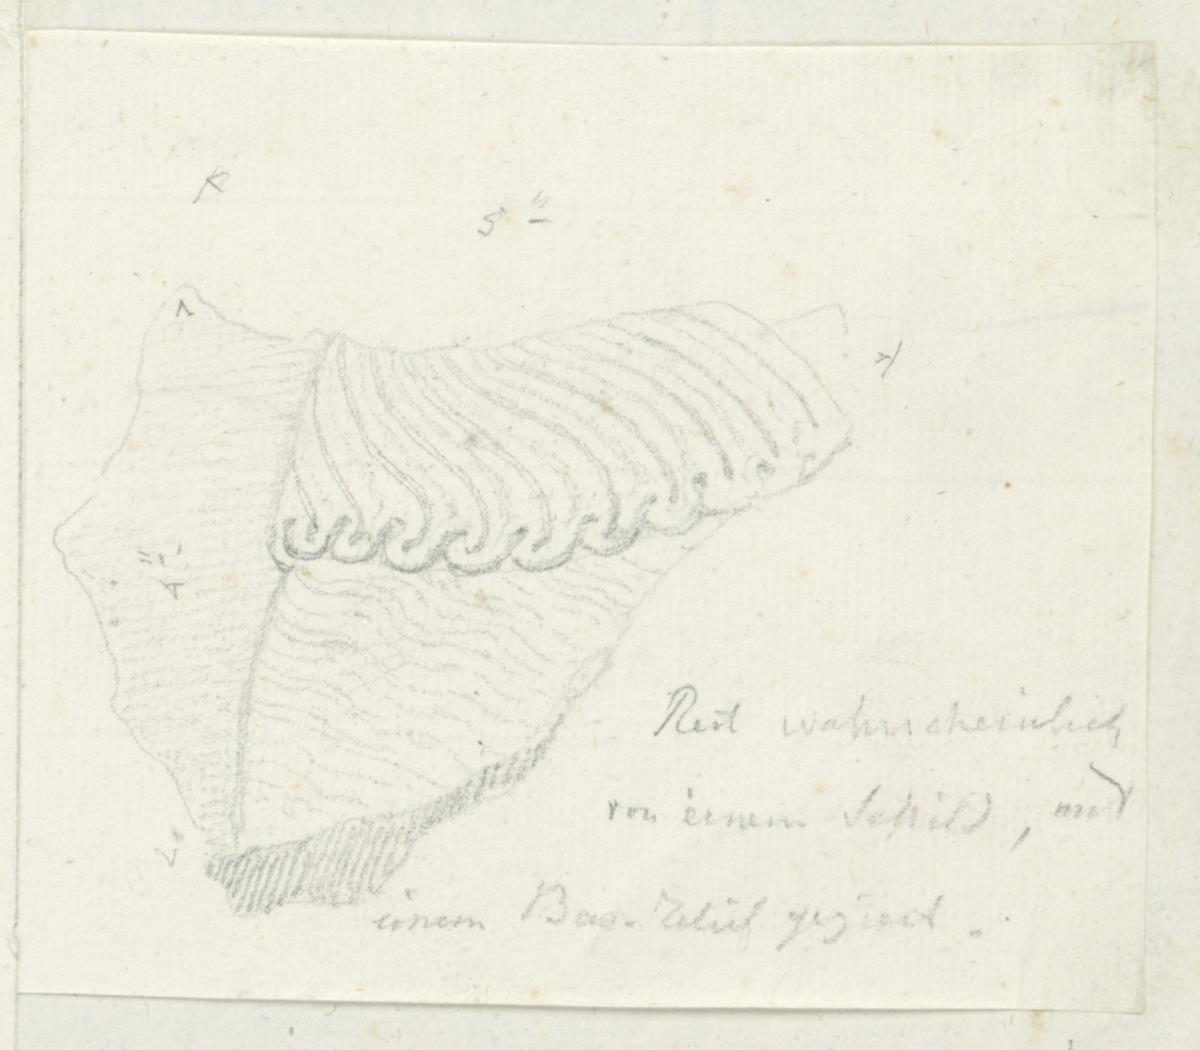 5"
4"
Rest wahrscheinlich
von einem Schild, mit
einem Bas-Relief geziert.